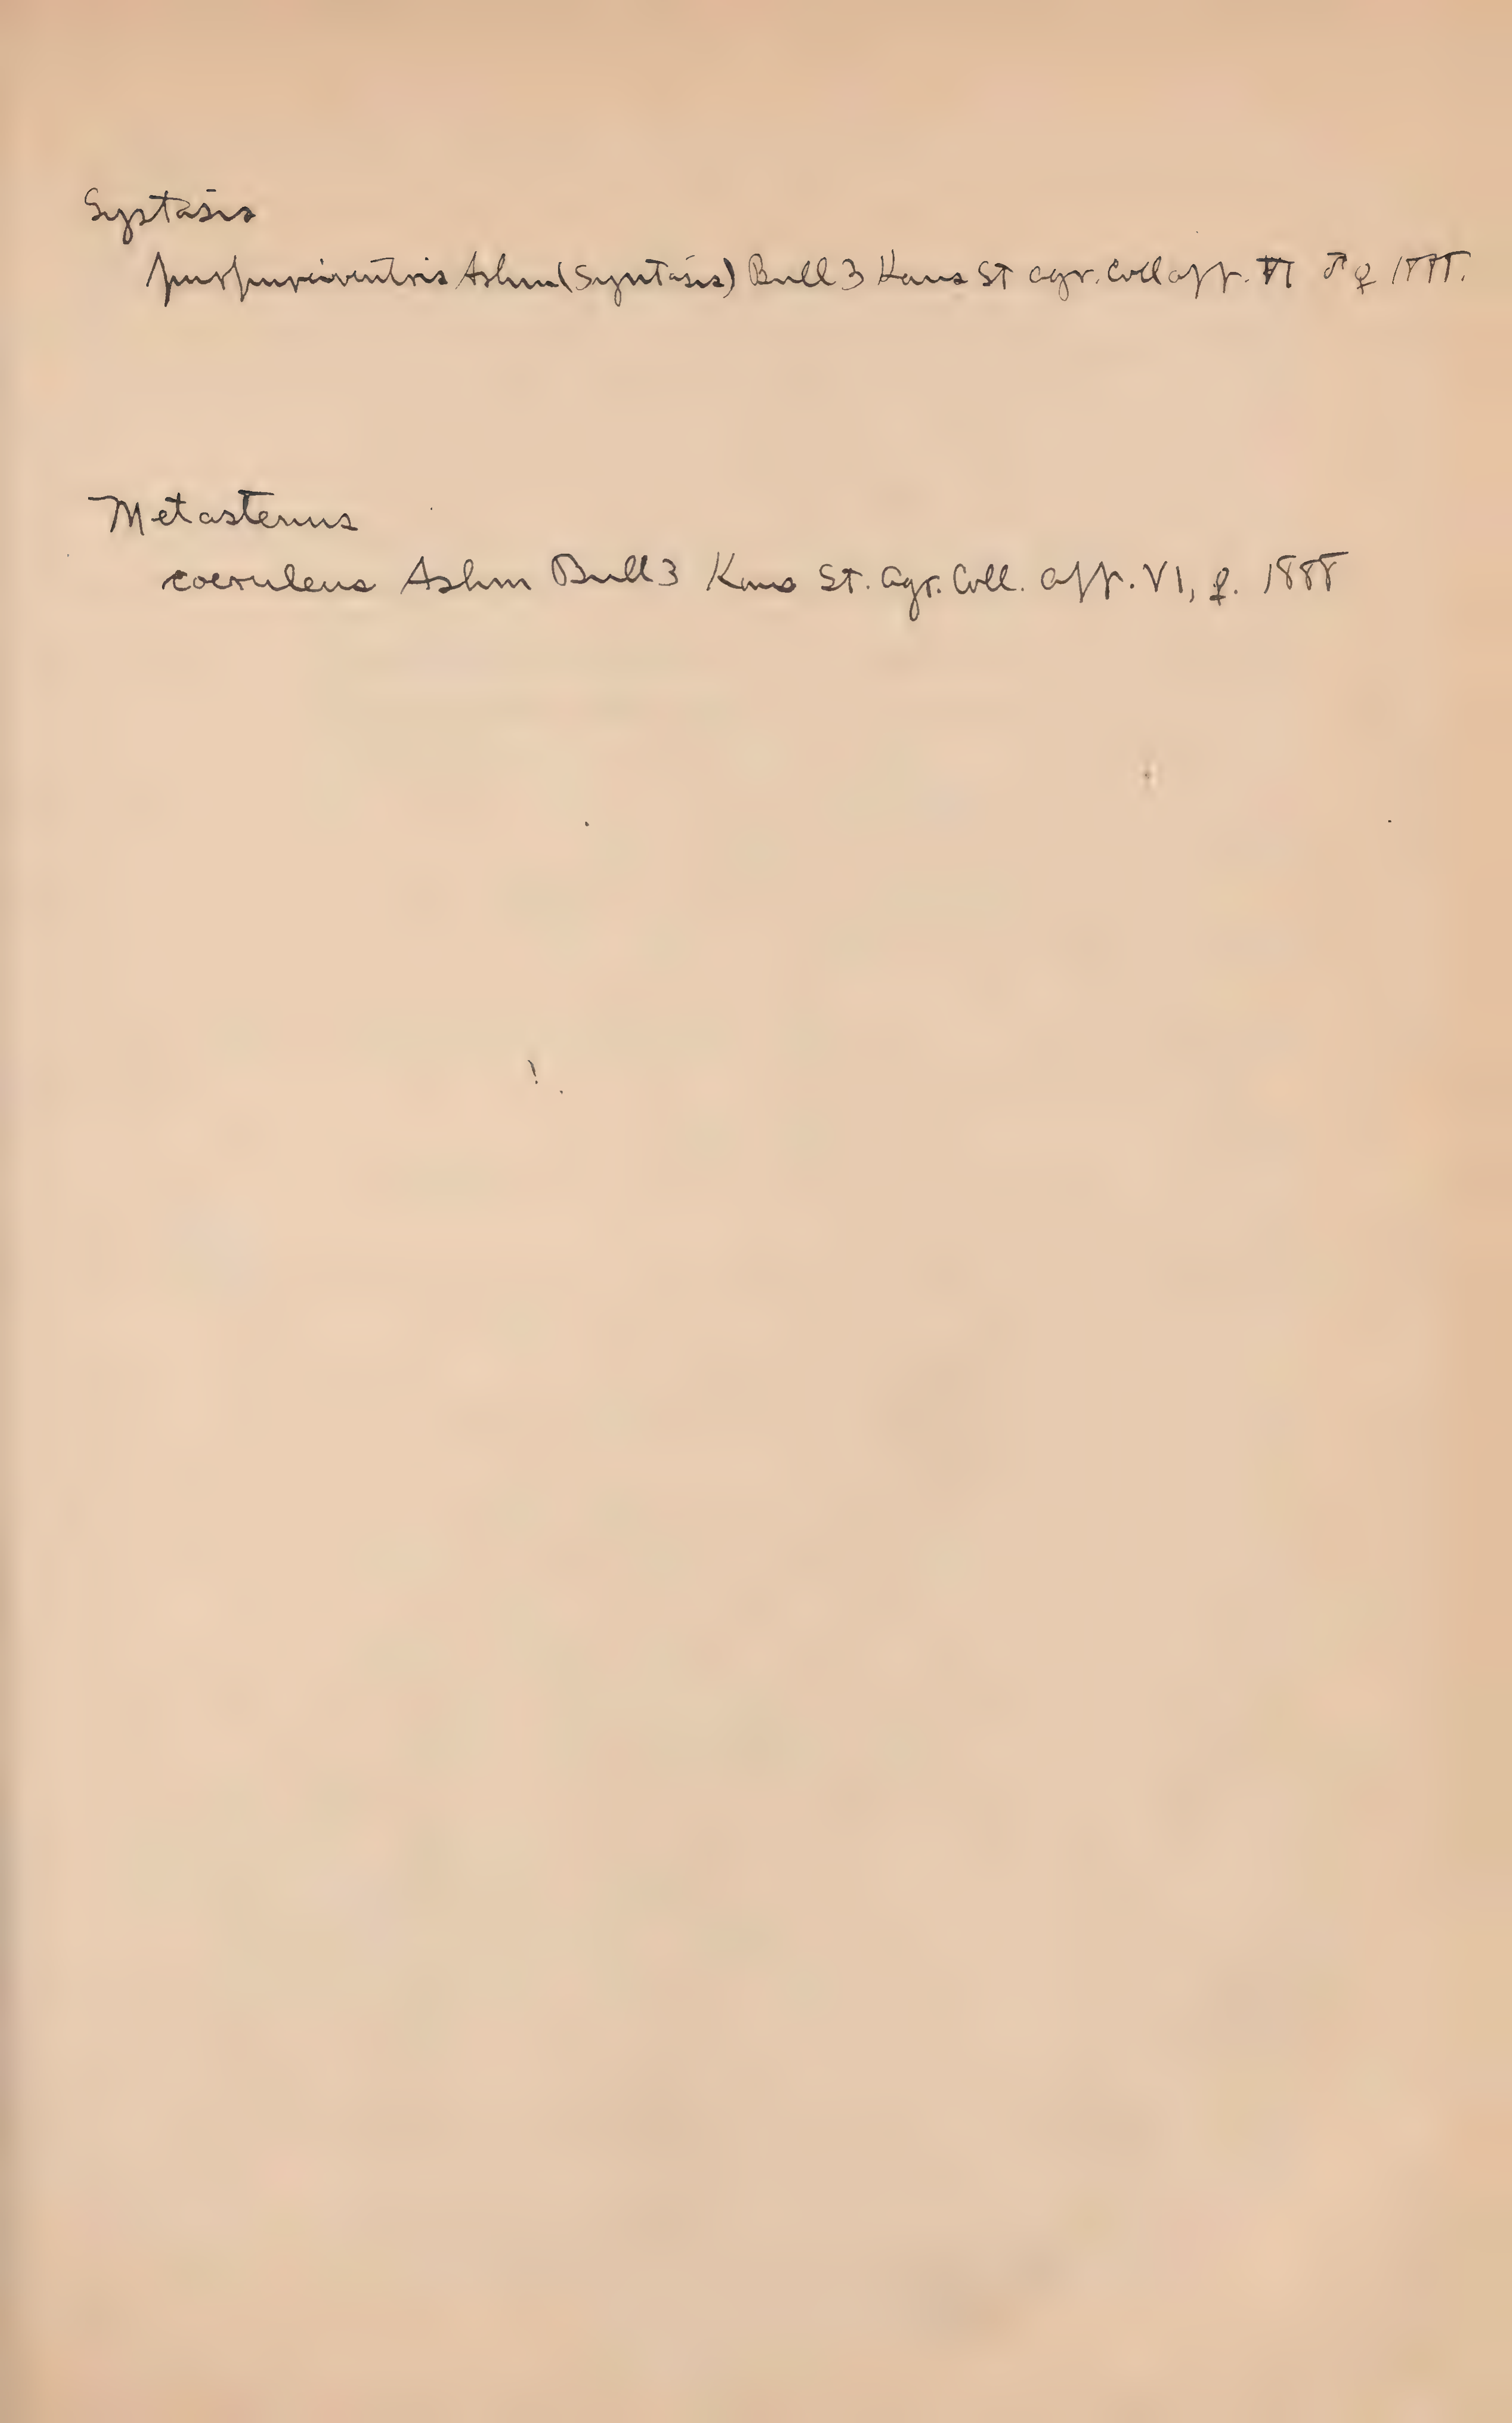 Systasis
purpureiventris Ashm (Syntasis) Bull 3 Kans St agr. Coll app. VI ♂ ♀ 1888.
Metastenus
coeruleus Ashm Bull 3 Kans St. Agr. Coll. app. VI, ♀. 1888